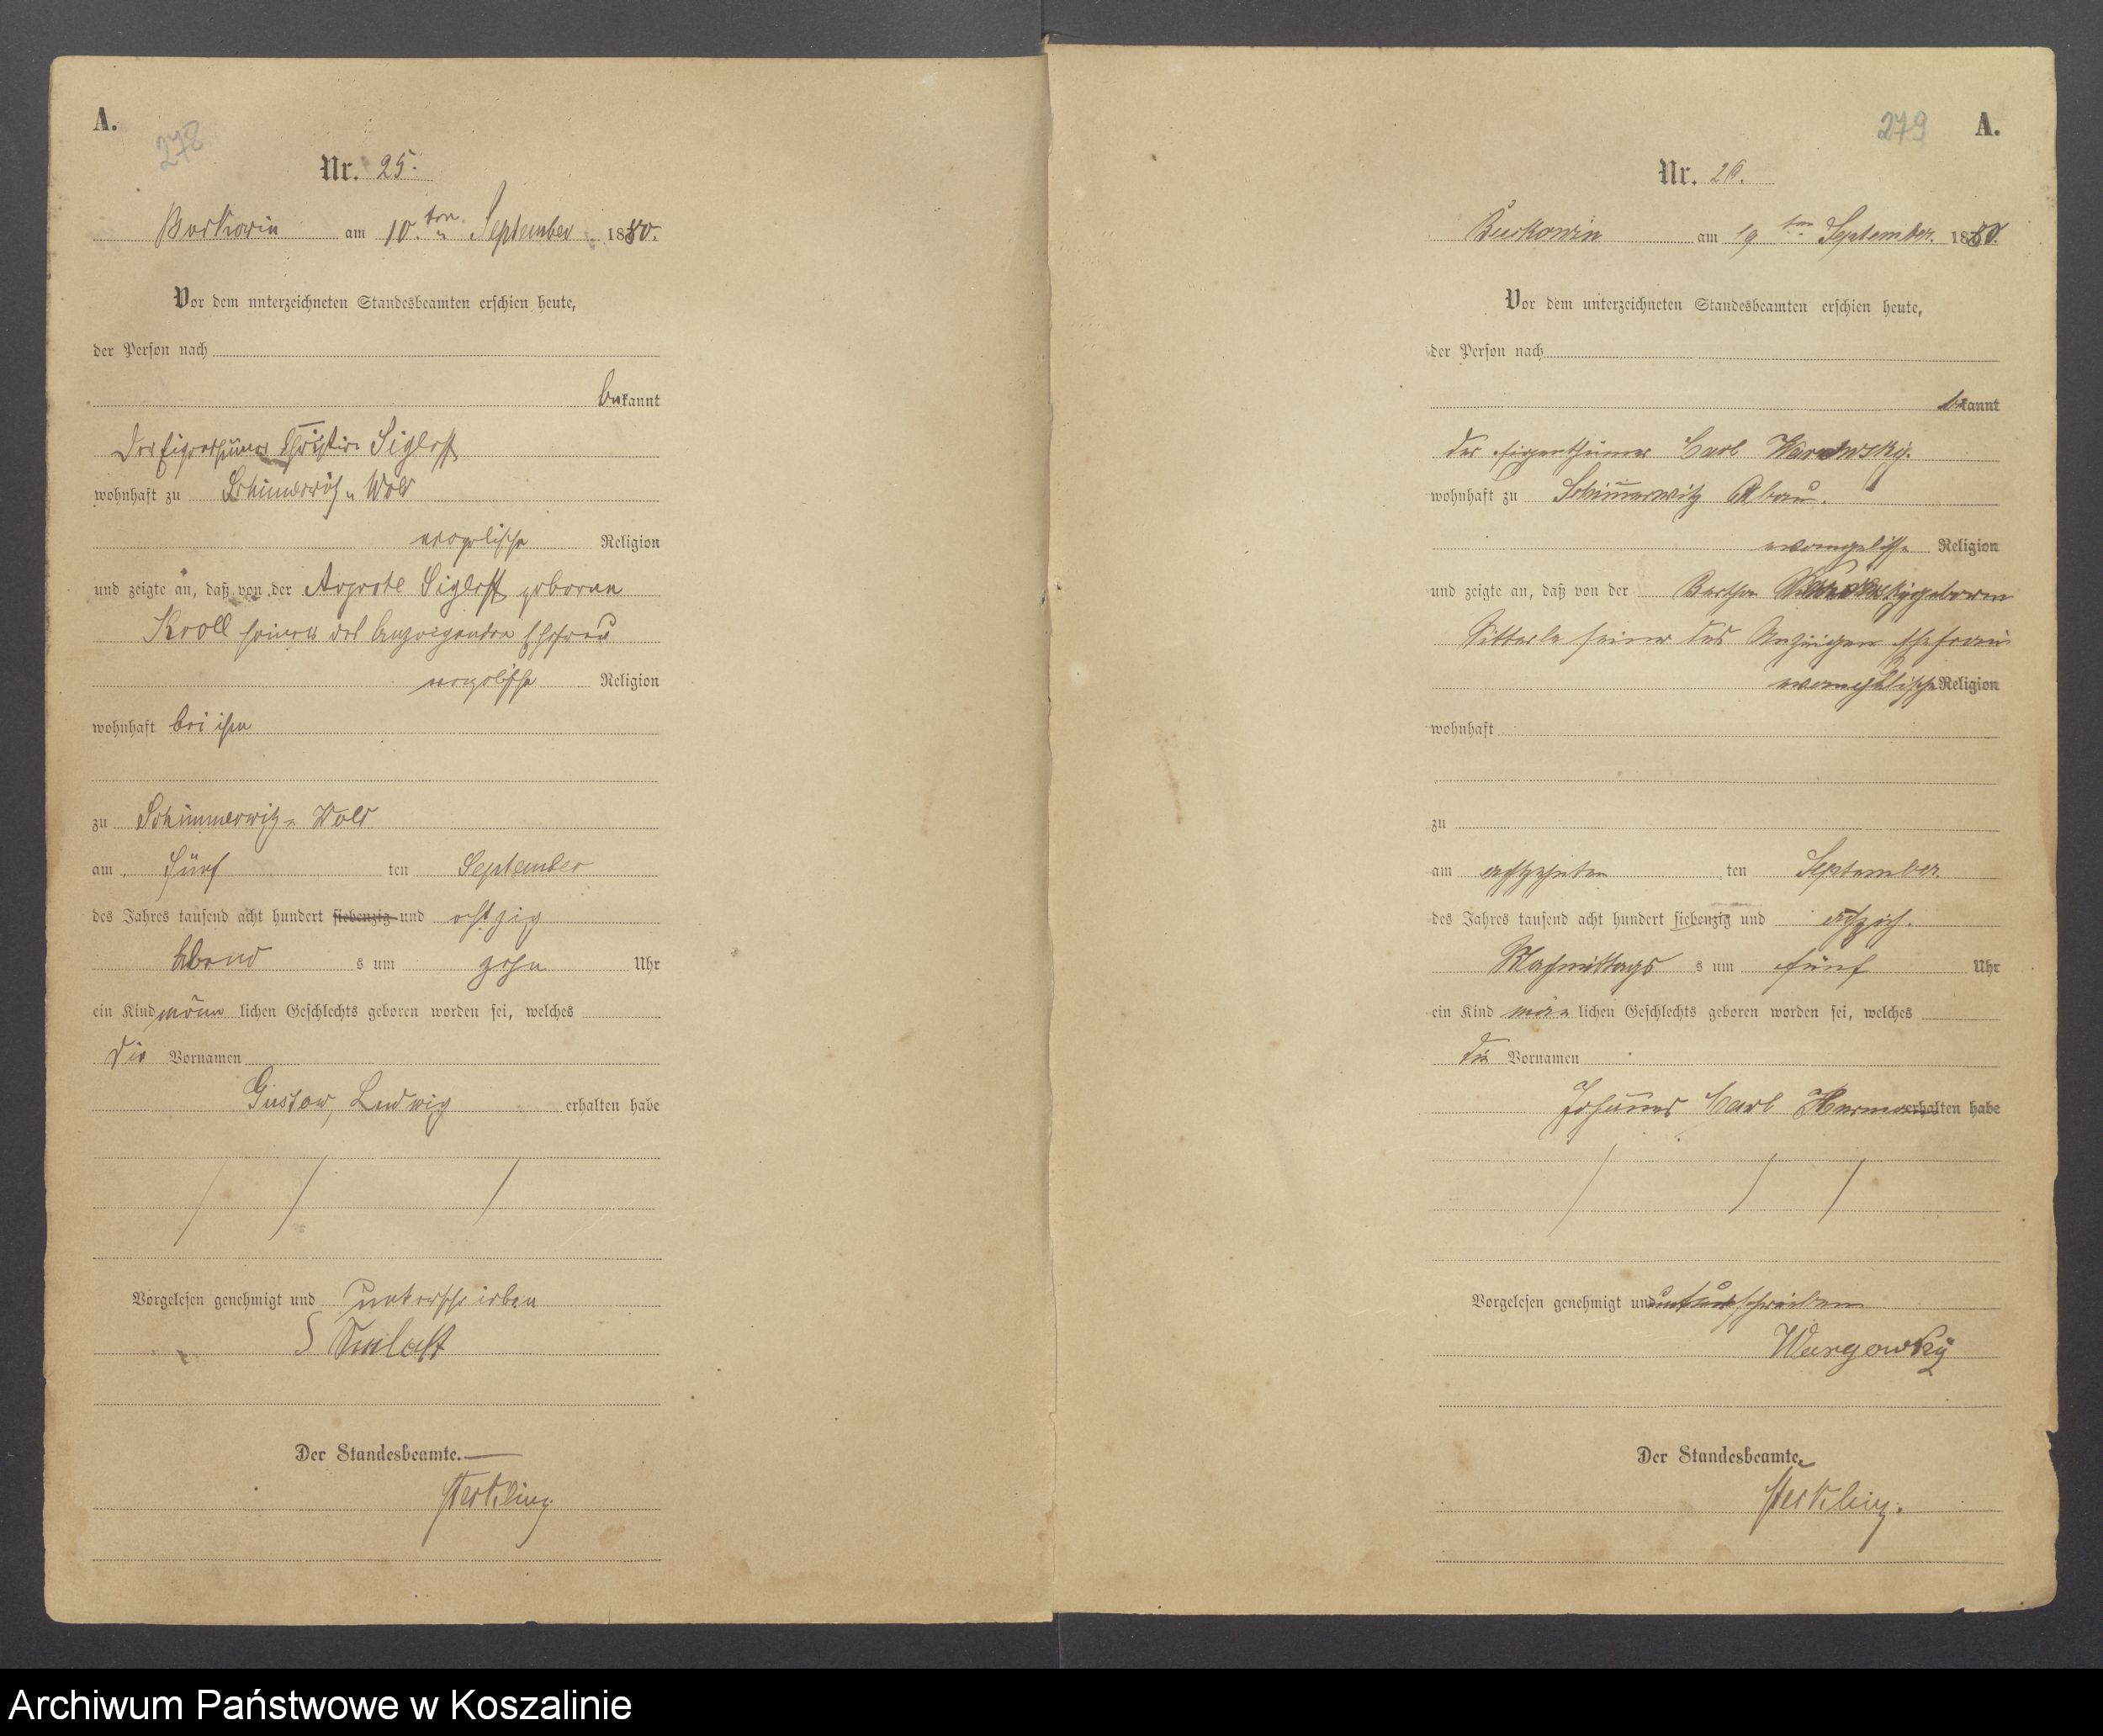 A.
278
Nr. 25.
Buckowin am 10. ten September 1880.
Vor dem unterzeichneten Standesbeamten erschien heute,
der Person nach
bekannt
Der Eigenthümer Christian
wohnhaft zu Schimmerwitz Wold
evangelische Religion
und zeigte an, daß von der geborene
Kroll seiner des Anzeigenden Ehefrau
evangelische Religion
wohnhaft bei ihm
zu Schimmerwitz Wold
am fünf ten September
des Jahres tausend acht hundert siebenzig und achtzig
Abend s um zehn Uhr
ein Kind männ lichen Geschlechts geboren worden sei, welches
die Vornamen
Gustav, Ludwig erhalten habe
Vorgelesen genehmigt und unterschrieben
Der Standesbeamte.
A.
279
Nr. 26.
Buckowin am 19 ten September. 1880.
Vor dem unterzeichneten Standesbeamten erschien heute,
der Person nach
bekannt
der Eigenthümer Carl
wohnhaft zu Schimmerwitz Abbau.
evangelische Religion
und zeigte an, daß von der Bertha geboren
seiner des Anzeigers Ehefrau
evangelische Religion
wohnhaft
zu
am achtzehnten ten September.
des Jahres tausend acht hundert siebenzig und achtzig.
Nachmittags s um fünf Uhr
ein Kind män lichen Geschlechts geboren worden sei, welches
die Vornamen
Johannes Carl Herman erhalten habe
Vorgelesen genehmigt und unterschrieben
Wargowsky
Der Standesbeamte.
Archiwum Państwowe w Koszalinie